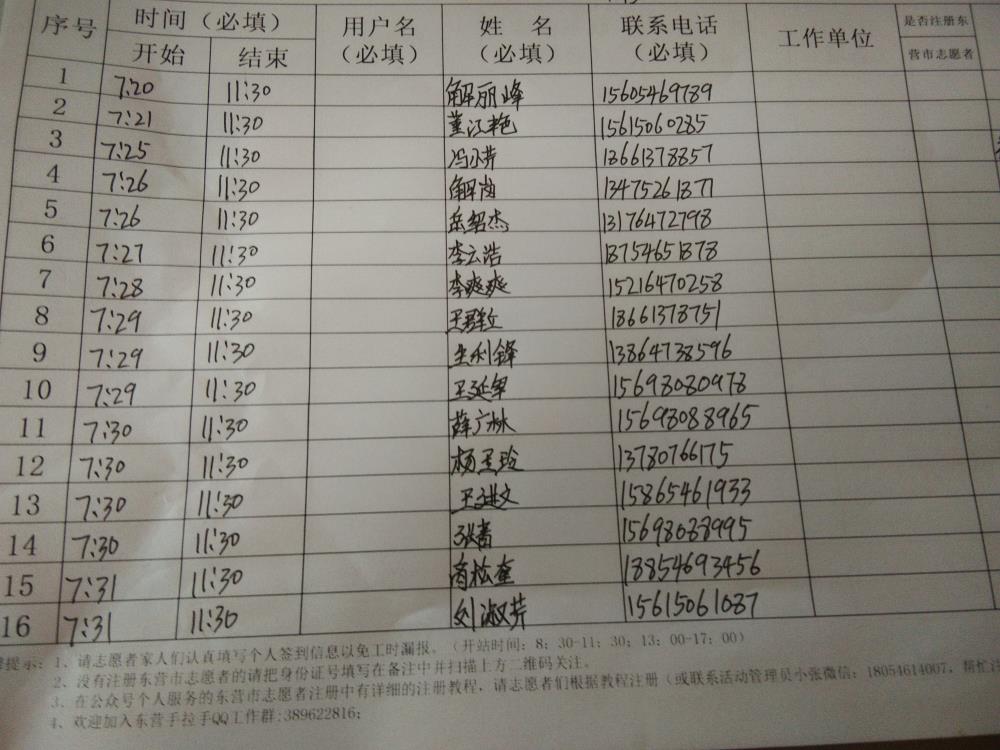 序号 时间（必填） 用户名（必填） 姓 名（必填） 联系电话（必填） 工作单位 是否注册东营市志愿者
开始 结束
1 7:20 11:30 解丽峰 15605469789
2 7:21 11:30 董江艳 15615060285
3 7:25 11:30 冯小芹 18661378857
4 7:26 11:30 解岗 13475261877
5 7:26 11:30 岳绍杰 13176472798
6 7:27 11:30 李云浩 18754651878
7 7:28 11:30 李爽爽 15216470258
8 7:29 11:30 18661378751
9 7:29 11:30 生利锋 13864738596
10 7:29 11:30 王延军 15698080978
11 7:30 11:30 薛广林 15698088965
12 7:30 11:30 杨玉玲 13780766175
13 7:30 11:30 15865461933
14 7:30 11:30 15698088995
15 7:31 11:30 商松奎 18854693456
16 7:31 11:30 刘淑芹 15615061087
提示：1、请志愿者家人们认真填写个人签到信息以免工时漏报。（开站时间：8：30-11：30；13：00-17：00）
2、没有注册东营市志愿者的请把身份证号填写在备注中并扫描上方二维码关注。
3、在公众号个人服务的东营市志愿者注册中有详细的注册教程，请志愿者们根据教程注册（或联系活动管理员小张微信：18054614007，帮忙
4、欢迎加入东营手拉手QQ工作群:389622816；